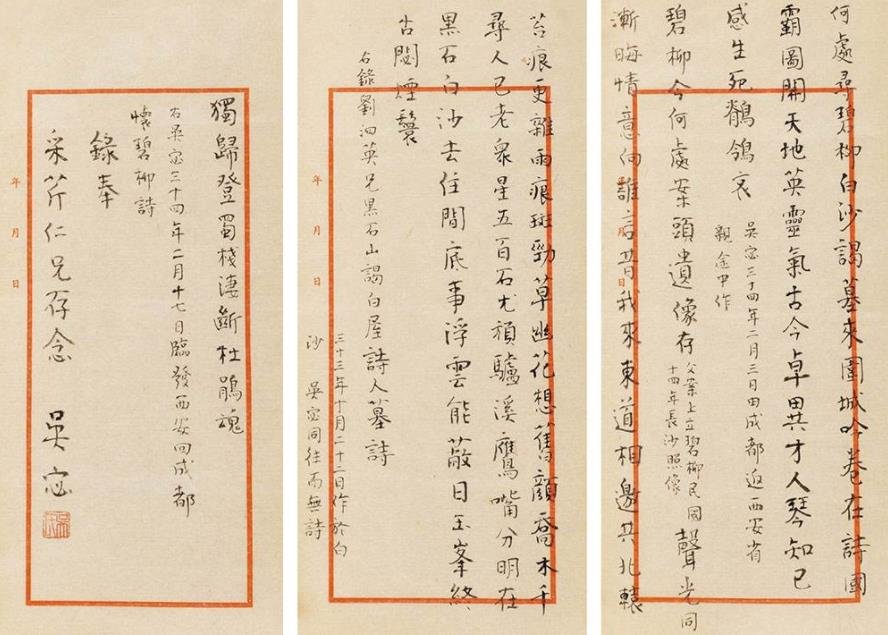 何處尋碧柳白沙謁墓來圍城吟卷在詩國
霸圖開天地英靈氣古今卓異才人琴知已
感生死鶺鴒哀
吳宓三十四年二月三日由成都返西安省
親途中作
碧柳今何處案頭遺像存 父案上立碧柳民國
十四年長沙照像 聲光同
漸晦情意向誰言昔我來東道相邀共北轅
年月日
苔痕更雜雨痕斑勁草幽花想舊顏喬木千
尋人已老眾星五百石尤頑驢溪鷹嘴分明在
黑石白沙去住間底事浮雲能蔽日玉峯終
古閟煙鬟
右錄劉泗英兄黑石山謁白屋詩人墓詩
三十三年十月二十二日作於白
沙 吳宓同往而無詩
年月日
獨歸登蜀棧淒斷杜鵑魂
右吳宓三十四年二月十七日臨發西安回成都
懷碧柳詩
錄奉
采芹仁兄存念 吳宓
年月日